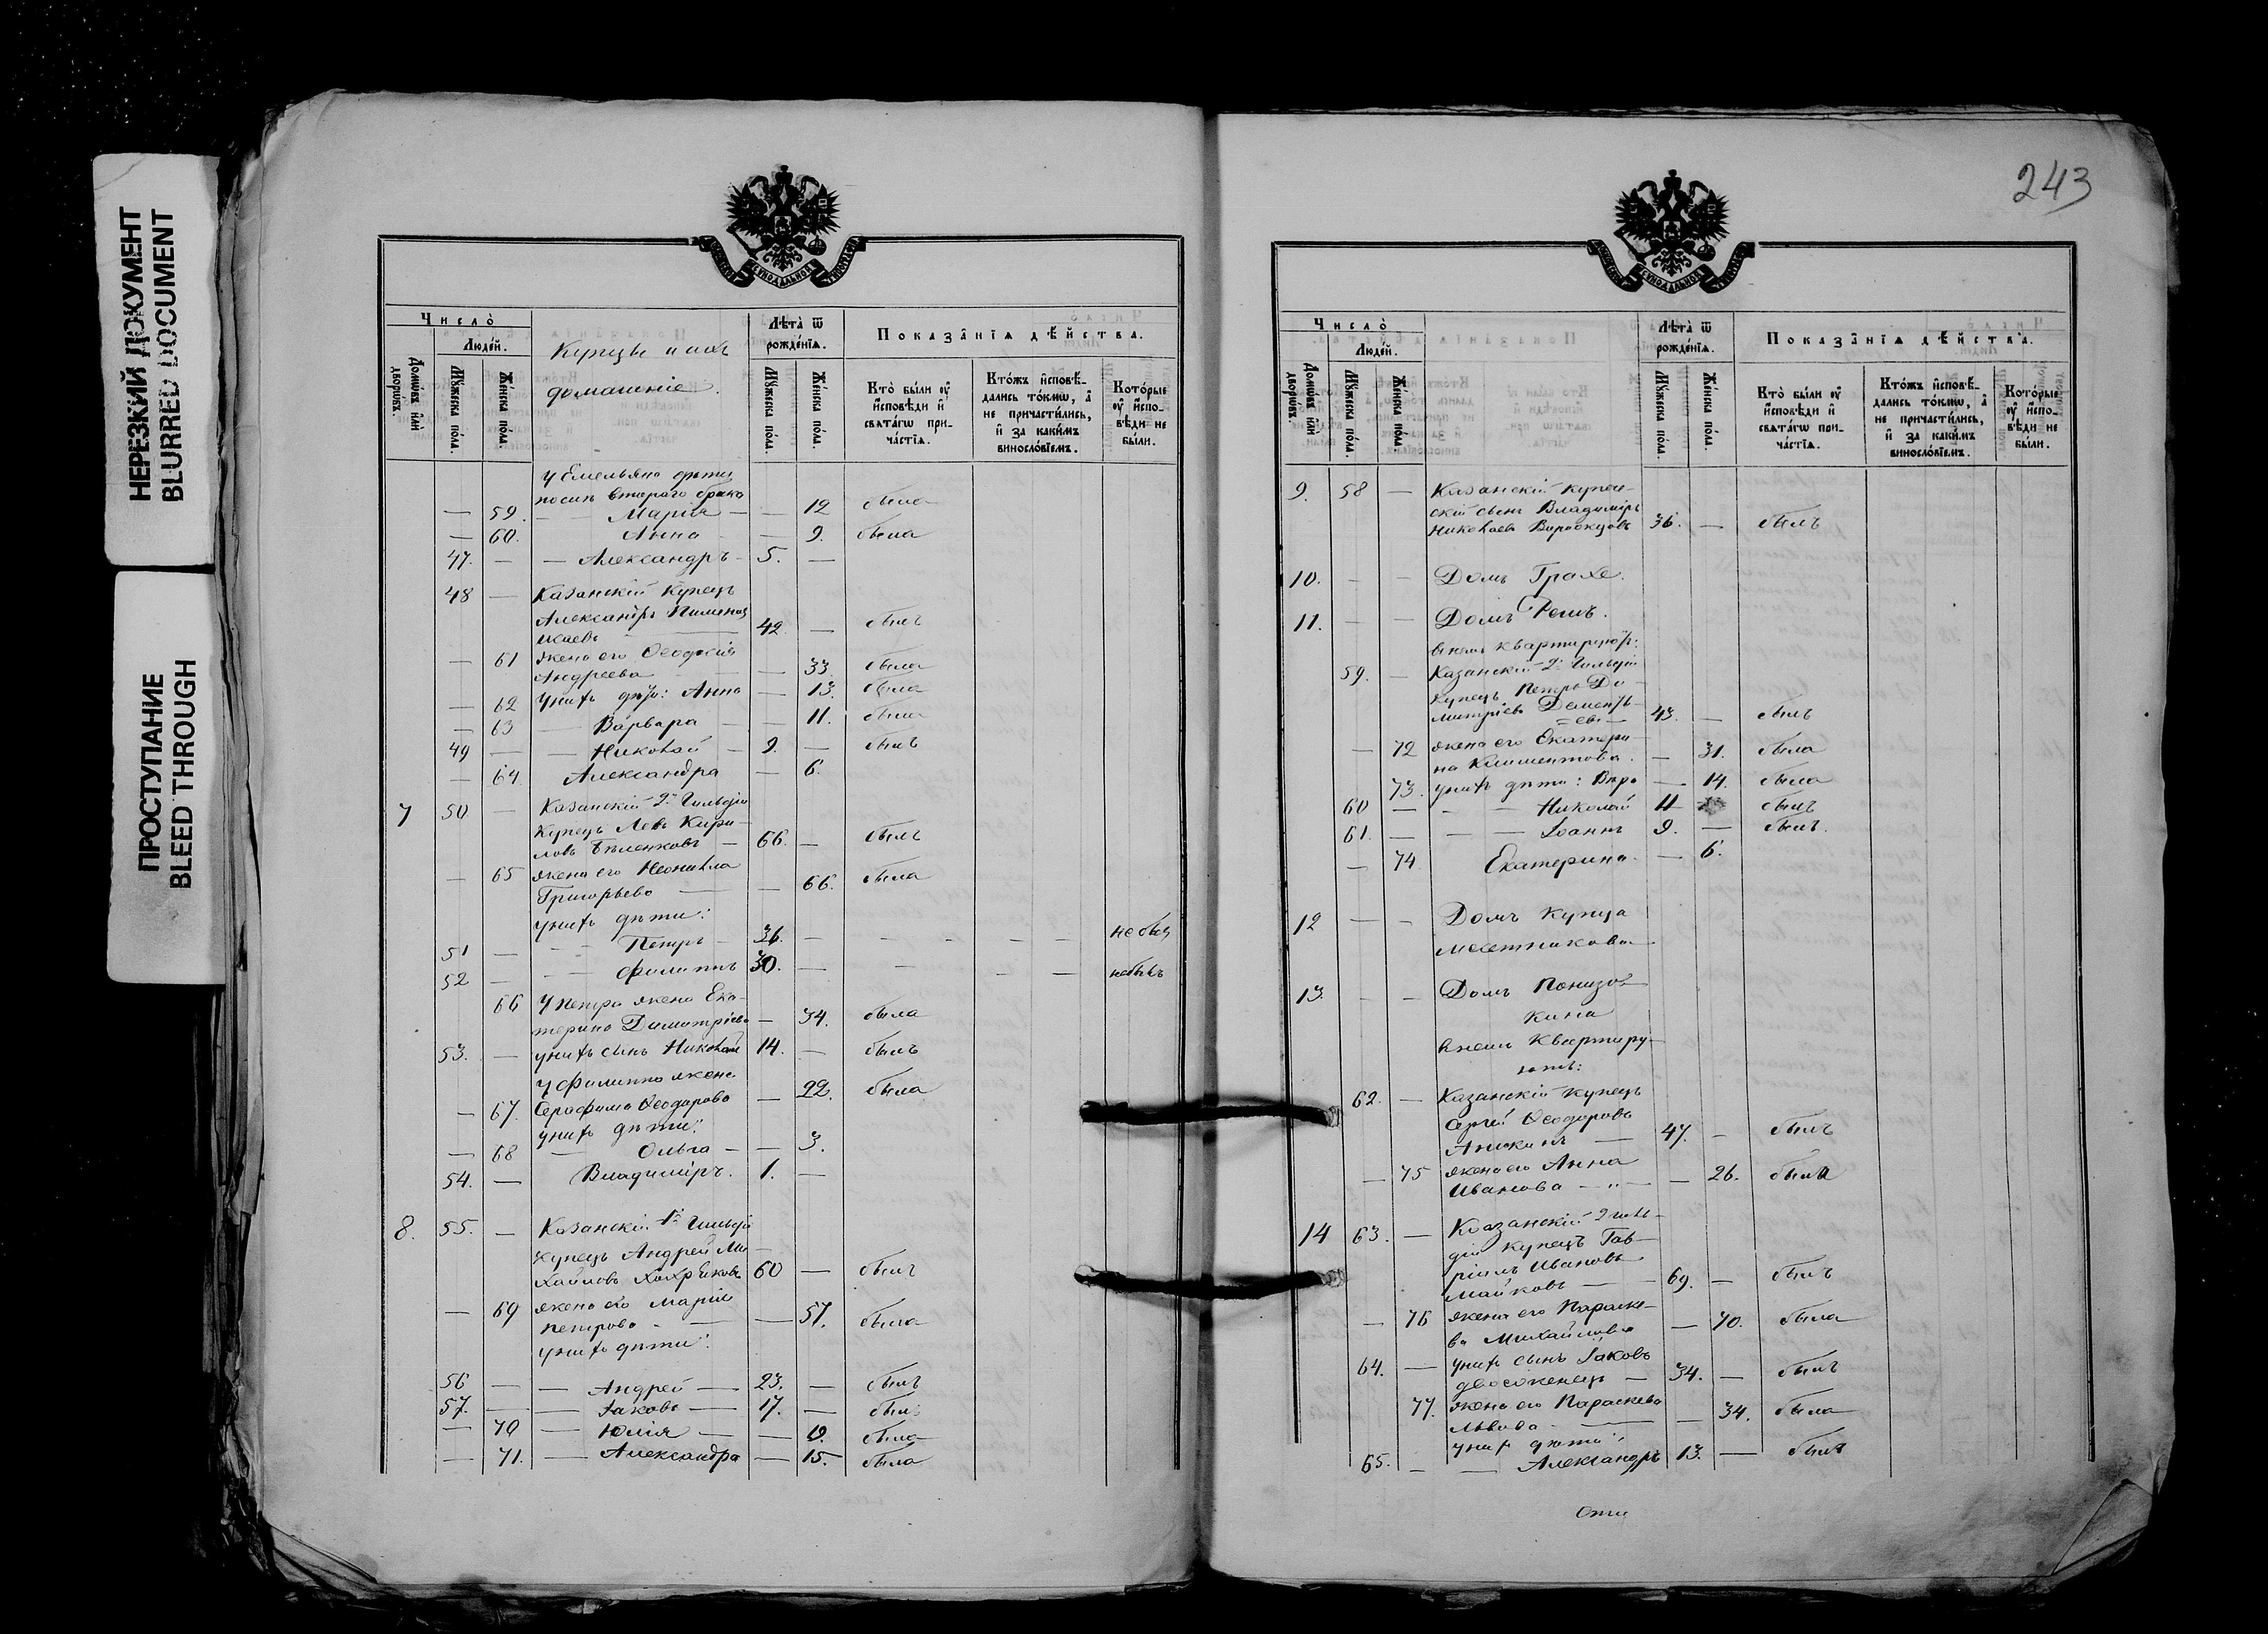 НЕРЕЗКИЙ ДОКУМЕНТ
BLURRED DOCUMENT
ПРОСТУПАНИЕ
BLEED THROUGH
Число̀
Людéй.
Домѡ́въ и҆лѝ дворѡ́въ.
Мꙋ́жеска по́ла.
Же́нска по́ла.
Купцы и ихъ
домашніе.
Лѣ́та ѿ рожде́нїѧ.
Мꙋ́жеска по́ла.
Же́нска по́ла.
Показа̑нїѧ дѣ́йства.
Кто̀ бы́ли ᲂу҆ и҆сповѣ́ди и҆ свѧта́гѡ прича́стїѧ.
Кто́жъ и҆сповѣ́дались то́кмѡ, а҆ не причасти́лись, и҆ за каки́мъ винослóвїемъ.
Кото́рые ᲂу҆ и҆сповѣ́ди не бы́ли.
У Емельяна дѣти
после втораго брака
— 59. — — Марія — — 12 была
— 60. Анна — — 9. была
47. — — Александръ — 5. —
48 — Казанскій купецъ
Александръ
42. — былъ
— 61 жена его Ѳеодосія
Андреева — 33. была
— 62 у нихъ дѣти: Анна — 13. была
— 63 — Варвара — — 11. была
49 — — Николай — 9. — былъ
— 64. Александра — 6.
7 50 — Казанскій 2й гильдіи
купецъ Левъ Кири-
ловъ Бѣленковъ — 66. — былъ
— 65 жена его Неонилла
Григорьева — — 66. была
у нихъ дѣти:
51 — — — Петръ — 36. — — — — — не былъ
52 — — — Филиппъ 30. — — — — не былъ
66 У Петра жена Ека-
терина Димитріева — 34. была
53. — у нихъ сынъ Николай 14. — былъ
У Филиппа жена
— 67. Серафима Ѳеодорова — 22. была
у нихъ дѣти:
— 68 — Ольга — — 3.
54. — Владиміръ. 1. —
8. 55. — Казанскій 1й гильдіи
купецъ Андрей Ми-
хайловъ Хохряковъ 60 — былъ
— 69 жена его Марія
Петрова — — 57. была
у нихъ дѣти:
56 — — Андрей — 23. — былъ
57. — — Іаковъ — 17. — былъ
— 70 — Юлія — — 19. была
— 71. — Александра — 15. была
243
Число̀
Людéй.
Домѡ́въ и҆лѝ дворѡ́въ.
Мꙋ́жеска по́ла.
Же́нска по́ла.
Лѣ́та ѿ рожде́нїѧ.
Мꙋ́жеска по́ла.
Же́нска по́ла.
Показа̑нїѧ дѣ́йства.
Кто̀ бы́ли ᲂу҆ и҆сповѣ́ди и҆ свѧта́гѡ прича́стїѧ.
Кто́жъ и҆сповѣ́дались то́кмѡ, а҆ не причасти́лись, и҆ за каки́мъ винослóвїемъ.
Кото́рые ᲂу҆ и҆сповѣ́ди не бы́ли.
9. 58 — Казанскій купече-
скій сынъ Владиміръ
Николаевъ 36. — былъ
10. — — Домъ Грахе.
11. — — Домъ
въ немъ квартирую:
59. — Казанскій 2й гильдіи
купецъ Петръ Ди-
митріевъ Дементь-
евъ — 43. — былъ
— 72 жена его Екатери-
на Климентова. — 31. была
73. у нихъ дѣти: Вѣра — 14. была
60 — — — Николай 11 — былъ
61. — — — Іоаннъ 9. — былъ.
— 74 Екатерина — — 6.
12 — — Домъ купца
Месетникова
13. — — Домъ Понизов-
кина
въ немъ квартиру-
ютъ:
62. — Казанскій купецъ
Сергѣй Ѳеодоровъ
Аникинъ — 47. — былъ
— 75 жена его Анна
Иванова — „ — — 26. была
14 63. — Казанскій 2 гиль-
діи купецъ Гав-
ріилъ Ивановъ
Майковъ — 69. — былъ
— 76 жена его Параске-
ва Михайлова — 70. была
64. — у нихъ сынъ Іаковъ
двоеженецъ — 34. — былъ
77. жена его Параскева
Львова — — 34. была
у нихъ дѣти:
65. — — Александръ 13. — былъ